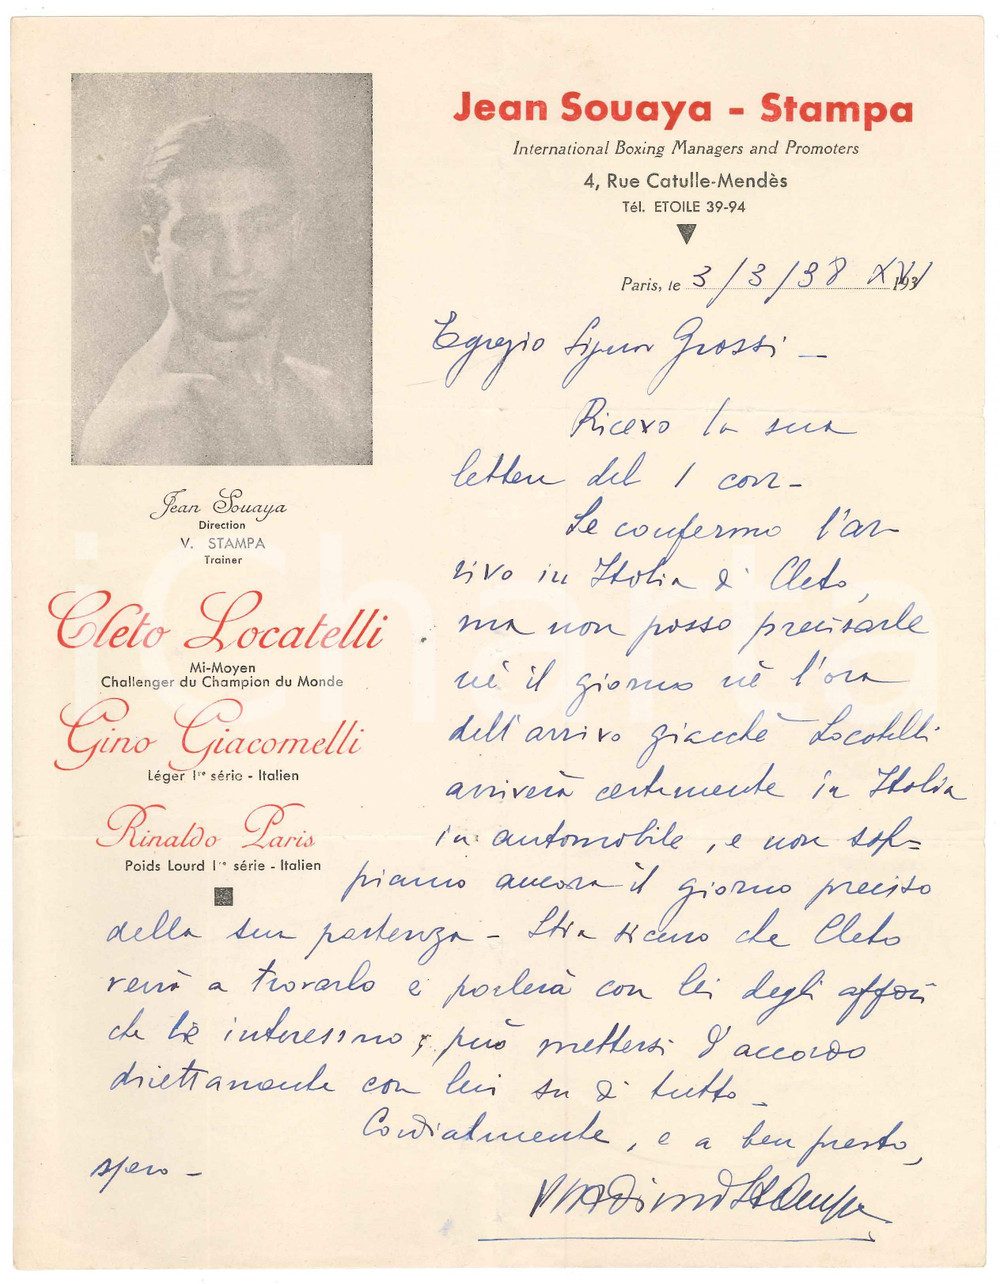 Jean Souaya - Stampa
International Boxing Managers and Promoters
4, Rue Catulle-Mendès
Tél. ETOILE 39-94
Paris, le 3/3/38 XVI 193
Jean Souaya
Direction
V. STAMPA
Trainer
Cleto Locatelli
Mi-Moyen
Challenger du Champion du Monde
Gino Giacomelli
Léger 1re série - Italien
Rinaldo Paris
Poids Lourd 1re série - Italien
Egregio Signor Grossi -
Ricevo la sua
lettera del 1 corr -
Le confermo l'ar-
rivo in Italia di Cleto,
ma non posso precisarle
nè il giorno nè l'ora
dell'arrivo giacchè Locatelli
arriverà certamente in Italia
in automobile, e non sap-
piamo ancora il giorno preciso
della sua partenza - Stia sicuro che Cleto
verrà a trovarlo e parlerà con lei degli affari
che le interessano, può mettersi d'accordo
direttamente con lui su di tutto -
Cordialmente, e a ben presto,
spero -
Vladimiro Stampa
iCharta